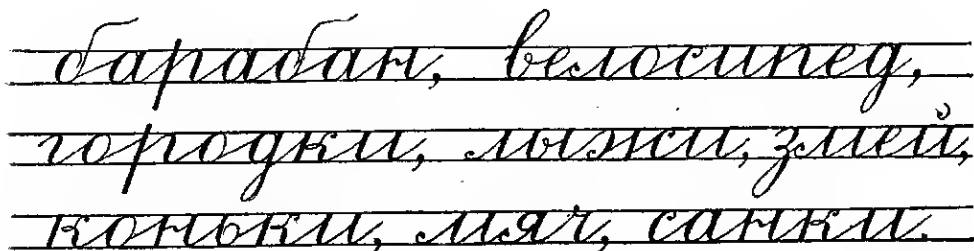 барабан, велосипед,
городки, лыжи, змей,
коньки, мяч, санки.